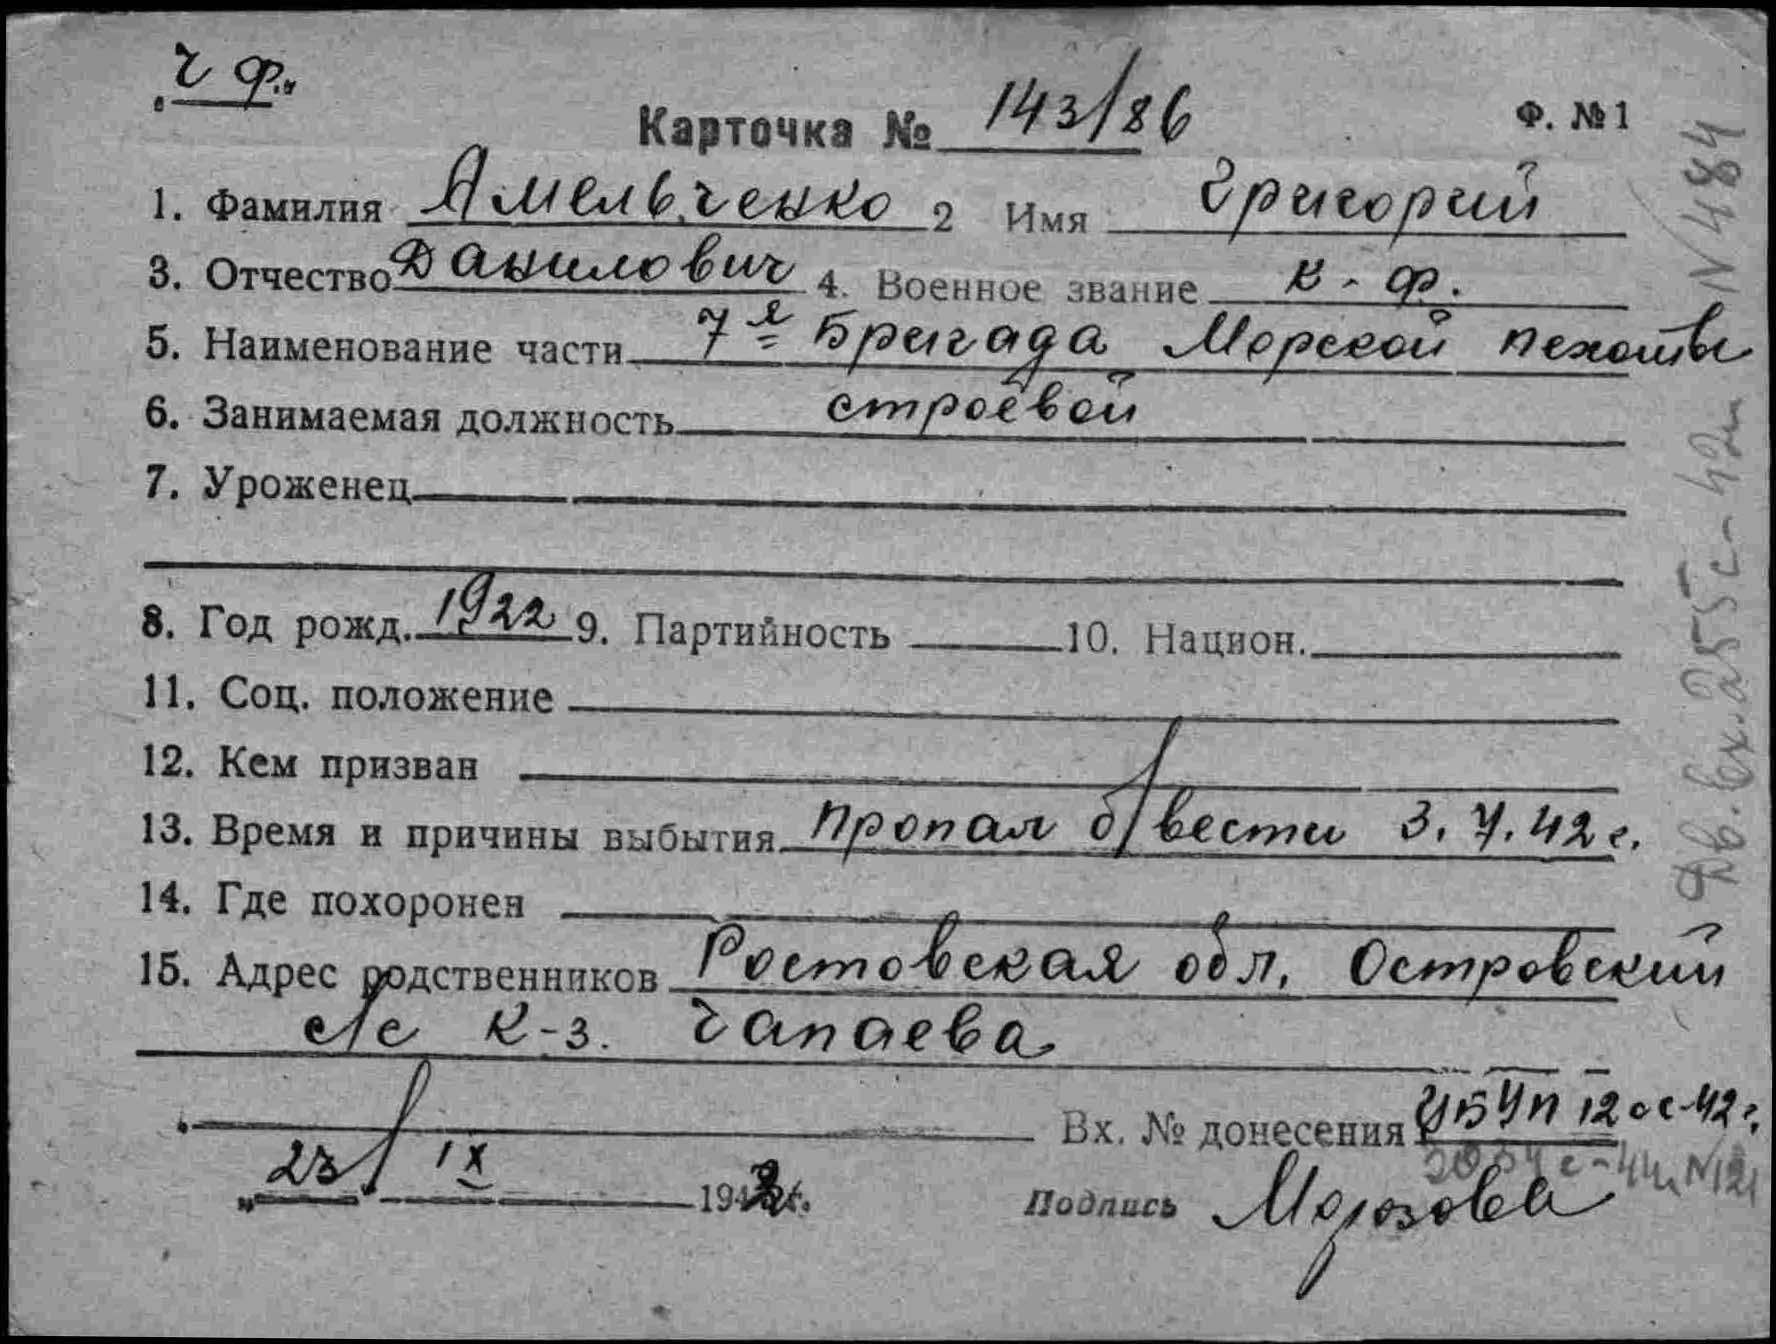 Ч Ф.
Карточка № 143/86
Ф. №1
1. Фамилия Амельченко 2 Имя Григорий
3. Отчество Данилович 4. Военное звание к-ф.
5. Наименование части 7я Бригада Морской пехоты
6. Занимаемая должность строевой
7. Уроженец
8. Год рожд. 1922 9. Партийность 10. Национ.
11. Соц. положение
12. Кем призван
13. Время и причины выбытия пропал б/вести 3.7.42 г.
14. Где похоронен
15. Адрес родственников Ростовская обл. Островский
с/с к-з. Чапаева
Вх. № донесения 12 сс-42 г.
23/IX 194 г.
Подпись Морозова
вх. 255с-42г N 484